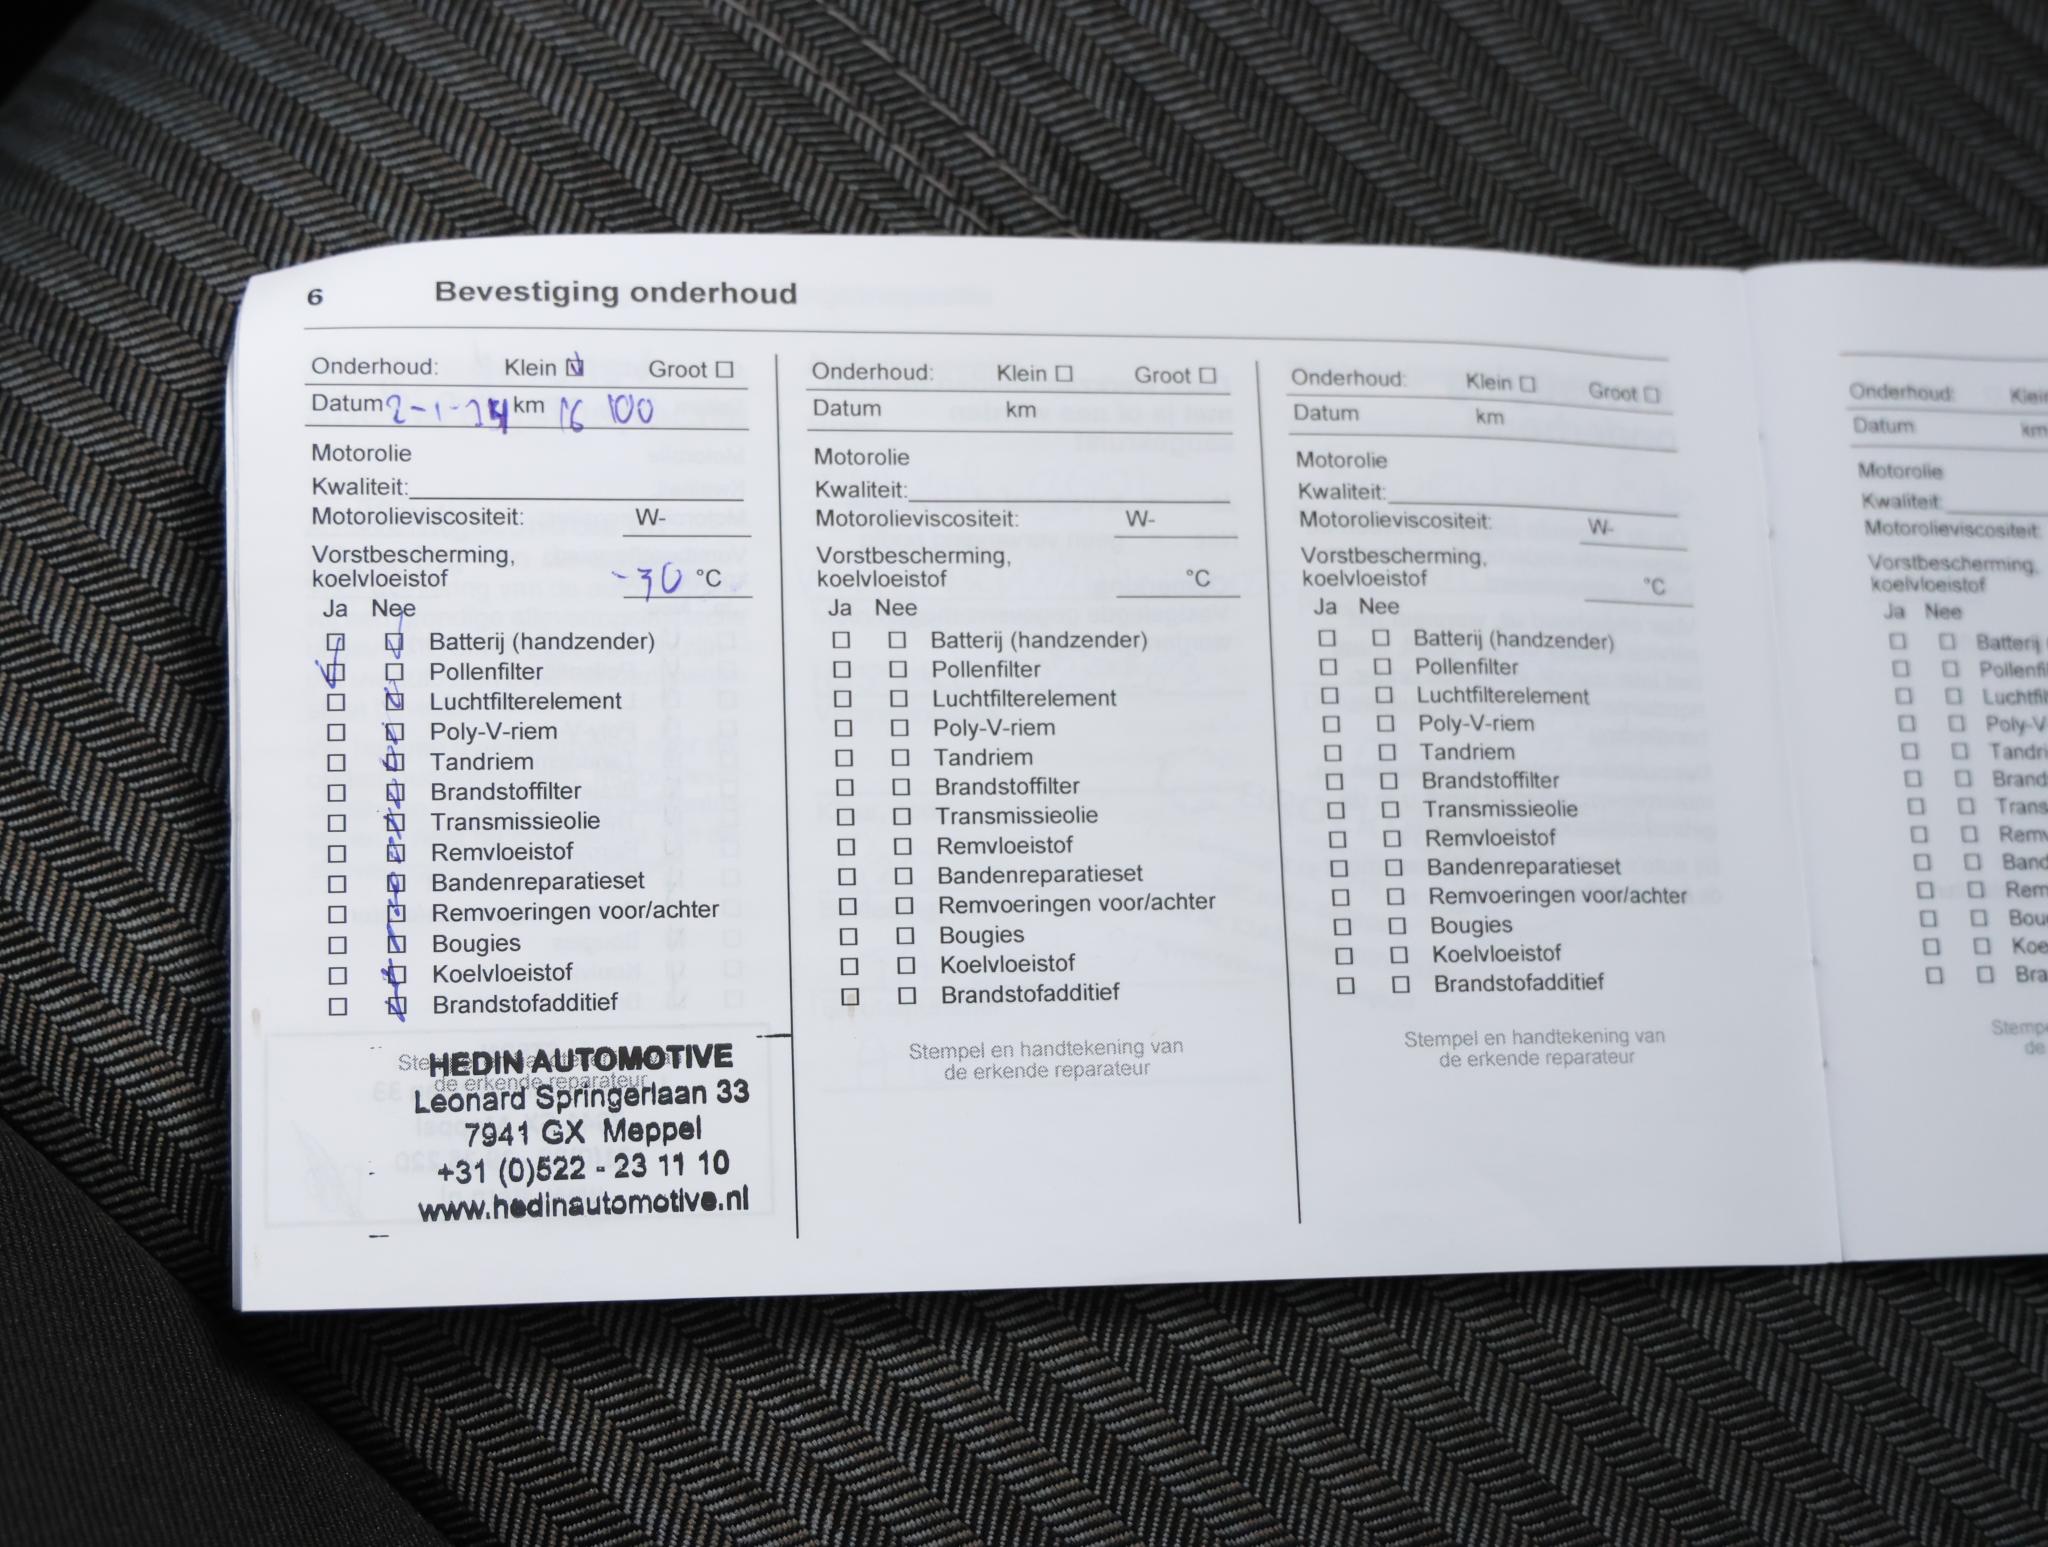 6 Bevestiging onderhoud
Onderhoud: Klein Groot
Datum 2-1- km 16 100
Motorolie
Kwaliteit:
Motorolieviscositeit: W-
Vorstbescherming,
koelvloeistof -30 °C
Ja Nee
Batterij (handzender)
Pollenfilter
Luchtfilterelement
Poly-V-riem
Tandriem
Brandstoffilter
Transmissieolie
Remvloeistof
Bandenreparatieset
Remvoeringen voor/achter
Bougies
Koelvloeistof
Brandstofadditief
de erkende reparateur
HEDIN AUTOMOTIVE
Leonard Springerlaan 33
7941 GX Meppel
+31 (0)522 - 23 11 10
www.hedinautomotive.nl
Onderhoud: Klein Groot
Datum km
Motorolie
Kwaliteit:
Motorolieviscositeit: W-
Vorstbescherming,
koelvloeistof °C
Ja Nee
Batterij (handzender)
Pollenfilter
Luchtfilterelement
Poly-V-riem
Tandriem
Brandstoffilter
Transmissieolie
Remvloeistof
Bandenreparatieset
Remvoeringen voor/achter
Bougies
Koelvloeistof
Brandstofadditief
Stempel en handtekening van
de erkende reparateur
Onderhoud: Klein Groot
Datum km
Motorolie
Kwaliteit:
Motorolieviscositeit: W-
Vorstbescherming,
koelvloeistof °C
Ja Nee
Batterij (handzender)
Pollenfilter
Luchtfilterelement
Poly-V-riem
Tandriem
Brandstoffilter
Transmissieolie
Remvloeistof
Bandenreparatieset
Remvoeringen voor/achter
Bougies
Koelvloeistof
Brandstofadditief
Stempel en handtekening van
de erkende reparateur
Onderhoud: Klein
Datum km
Motorolie
Kwaliteit:
Motorolieviscositeit:
Vorstbescherming,
koelvloeistof
Ja Nee
Batterij
Pollenfil
Luchtfil
Poly-V
Tandri
Brand
Trans
Remv
Band
Rem
Bou
Koe
Bra
Stempe
de